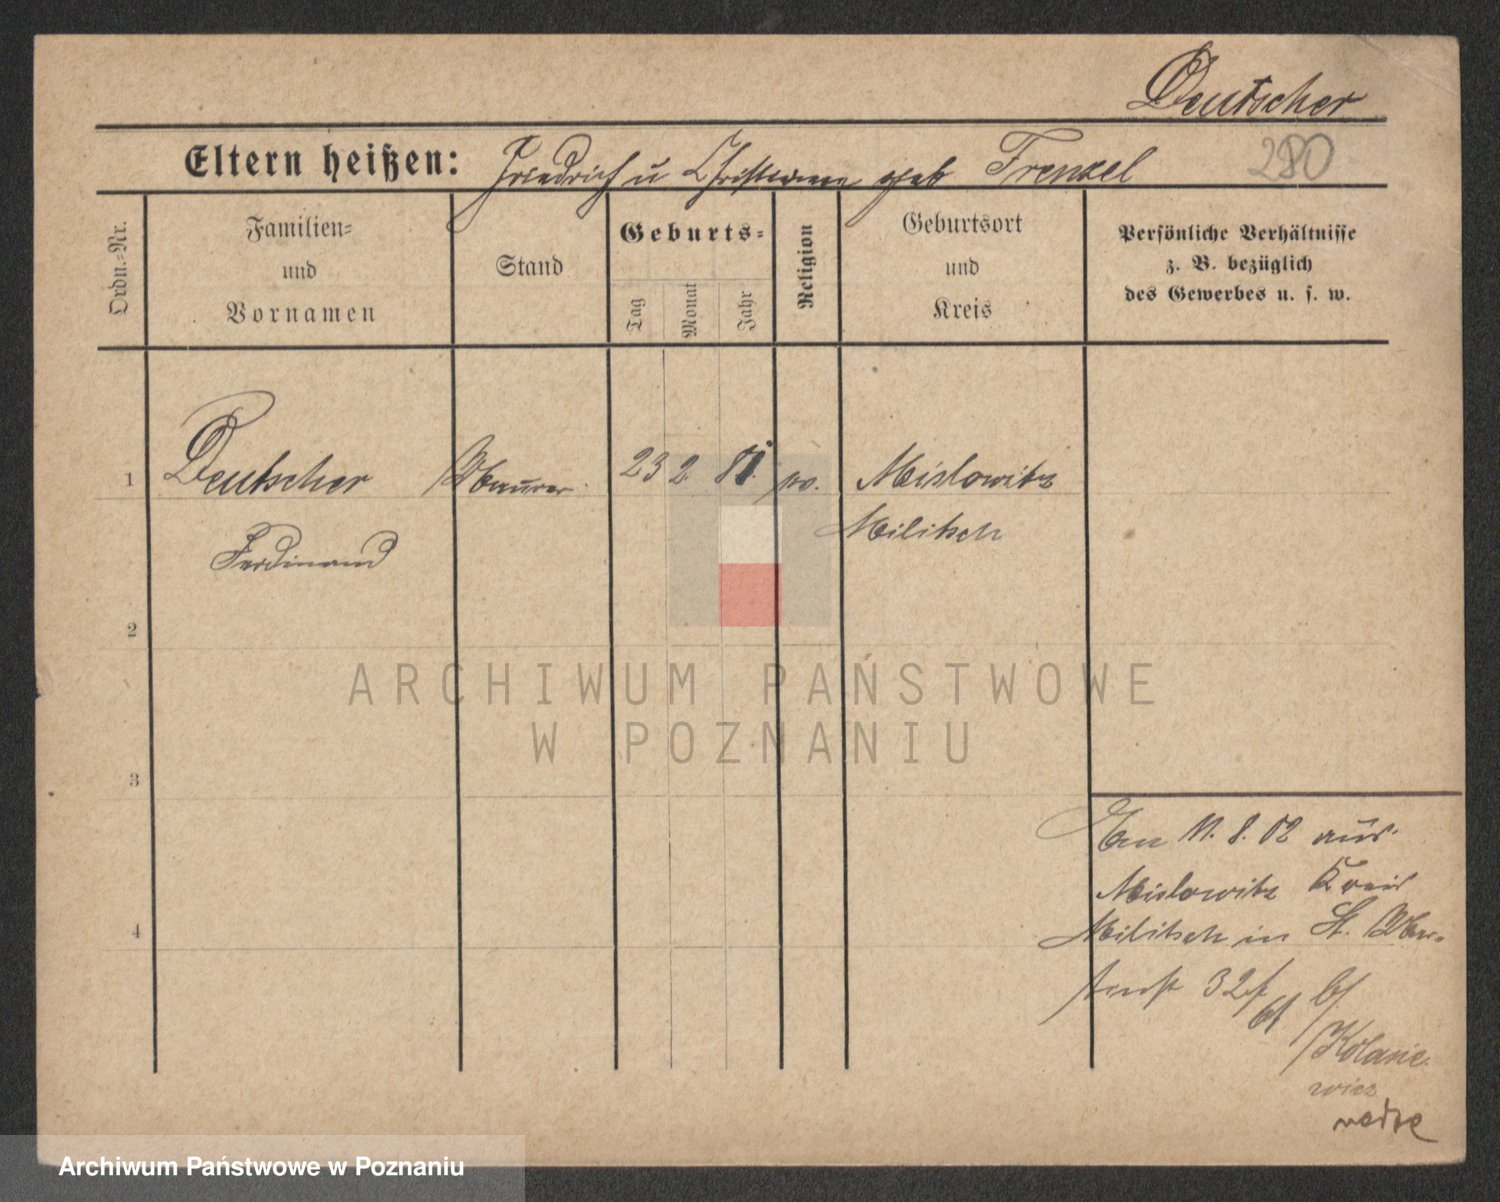 Deutscher
280
Eltern heißen: Friedrich u Christiane geb Frenzel
Ordn.-Nr.
Familien-
und
Vornamen
Stand
Geburts-
Tag
Monat
Jahr
Religion
Geburtsort
und
Kreis
Persönliche Verhältnisse
z. B. bezüglich
des Gewerbes u. s. w.
1 Deutscher Maurer 23 2. 81. Mislowitz
Ferdinand Militsch
2
3
4
11. 8. 02 aus
Mislowitz Kreis
Militsch in St. Mar-
32 b/
Kolasie-
wicz
ARCHIWUM PAŃSTWOWE
W POZNANIU
Archiwum Państwowe w Poznaniu